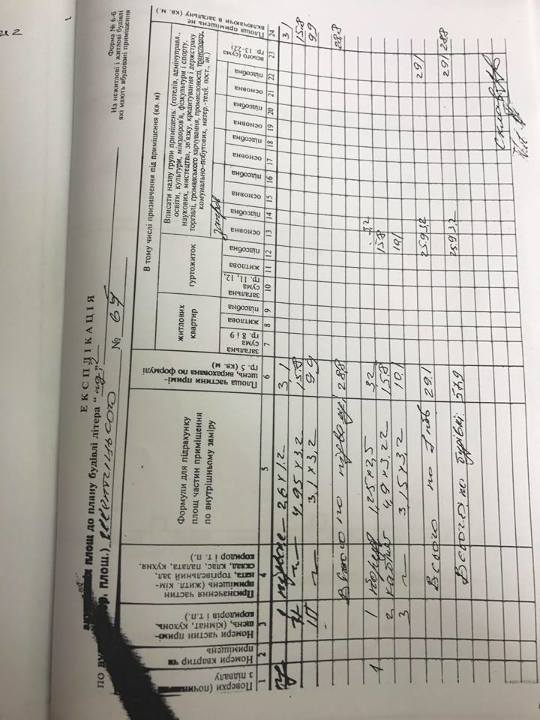 Форма № 6-б
На нежитлові і житлові будівлі
які мають вбудовані приміщення
ЕКСПЛІКАЦІЯ
площ до плану будівлі літера "
ПО
площ.)
№ 65
Поверхи (починаючи
з підвалу
Номери квартир чи
приміщень
Номери частин примі-
щень, (кімнат, кухонь,
коридорів і т.п.)
Призначення частин
приміщень (житл. кім-
ната, торгівельний зал,
склад, клас, палата, кухня,
коридор і т. п.)
Формули для підрахунку
площ частин приміщення
по внутрішньому заміру
Площа частини примі-
щень, вирахована по формулі
гр. 5 (кв. м)
В тому числі призначення під приміщення (кв. м)
житлових
квартир
гуртожиток
Вписати назву групи приміщень (готелів, адмінуправл.,
освіти, культури, міндоров'я, фізкультури і спорту,
наукових, мистецтва, зв'язку, кредитування і держстраху
торгівлі, громадського харчування, промисловості, транспорту,
комунально-побутових, матер.-техн. пост., ін.)
загальна
сума
гр. 8 і 9
житлова
підсобна
загальна
сума
гр. 11, 12,
житлова
підсобна
основна
підсобна
основна
підсобна
основна
підсобна
основна
підсобна
основна
підсобна
всього (сума
гр. 13-22)
Площа приміщень не
включаючи в загальну (кв. м.)
1 2 3 4 5 6 7 8 9 10 11 12 13 14 15 16 17 18 19 20 21 22 23 24
I 2,6 x 1,2 3,1 3,1
II 4,95 x 3,2 15,8 15,8
III 3,1 x 3,2 9,9 9,9
Всього по підвалу 28,8 28,8
1 1 1,25 x 2,5 3,2 3,2
2 4,9 x 3,22 15,8 15,8
3 3,15 x 3,2 10,1 10,1
Всього по 1 пов 29,1 25,9 3,2 29,1
Всього по будівлі 57,9 25,9 3,2 29,1 28,8